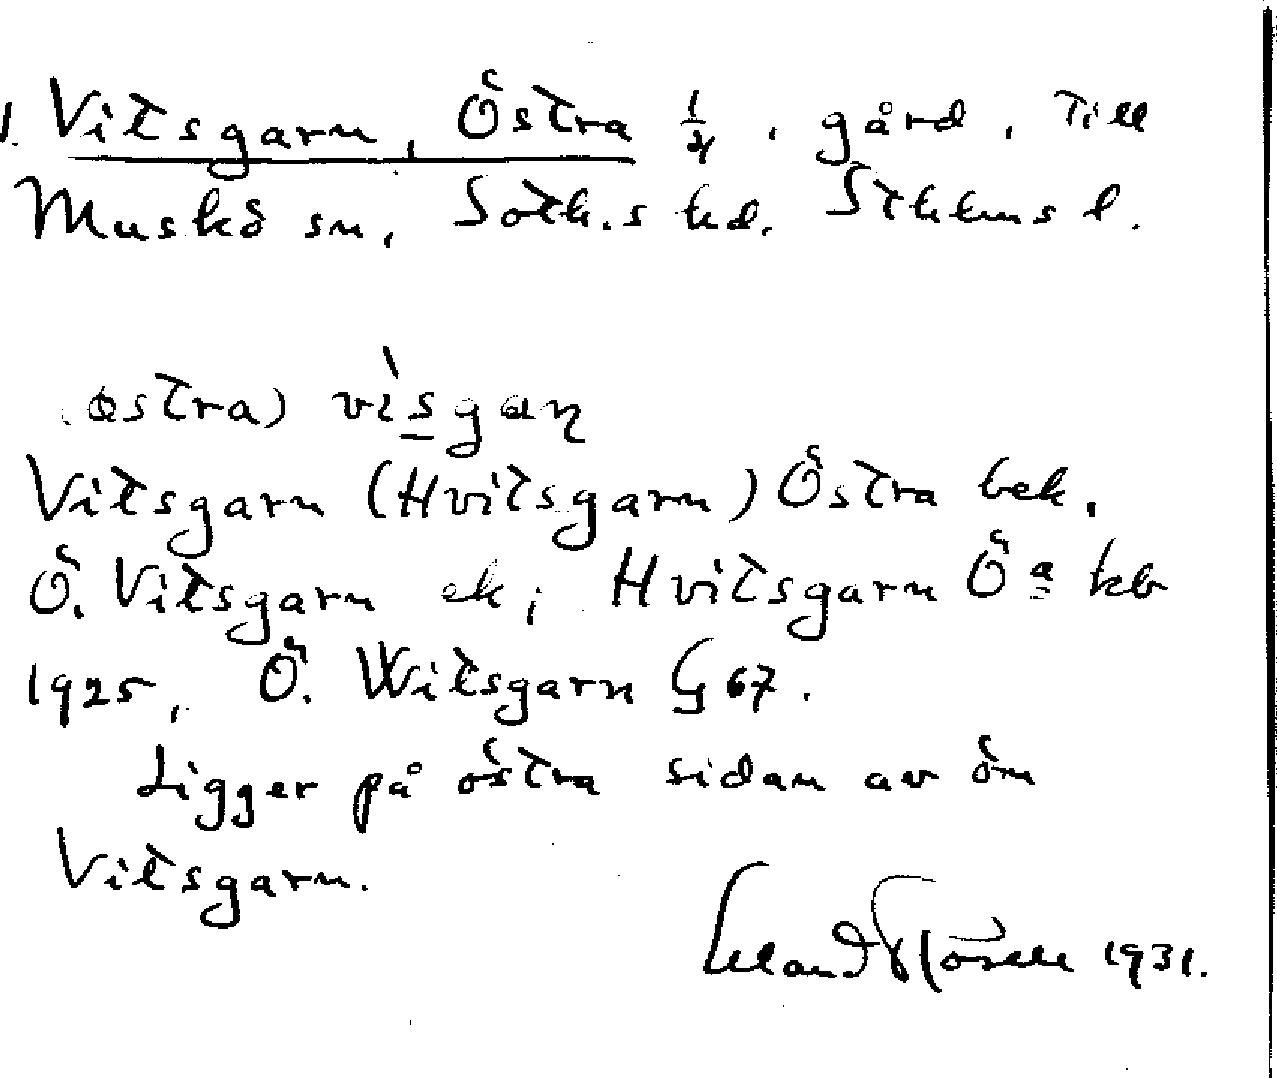 1. Vitsgarn, Östra 1/4, gård, till
Muskö sn, Soth.s hd. Sthlms l.
(östra) vìsgaɳ
Vitsgarn (Hvitsgarn) Östra bek.
Ö. Vitsgarn ek; Hvitsgarn Öa kb
1925, Ö. Witsgarn G 67.
Ligger på östra sidan av ön
Vitsgarn.
1931.